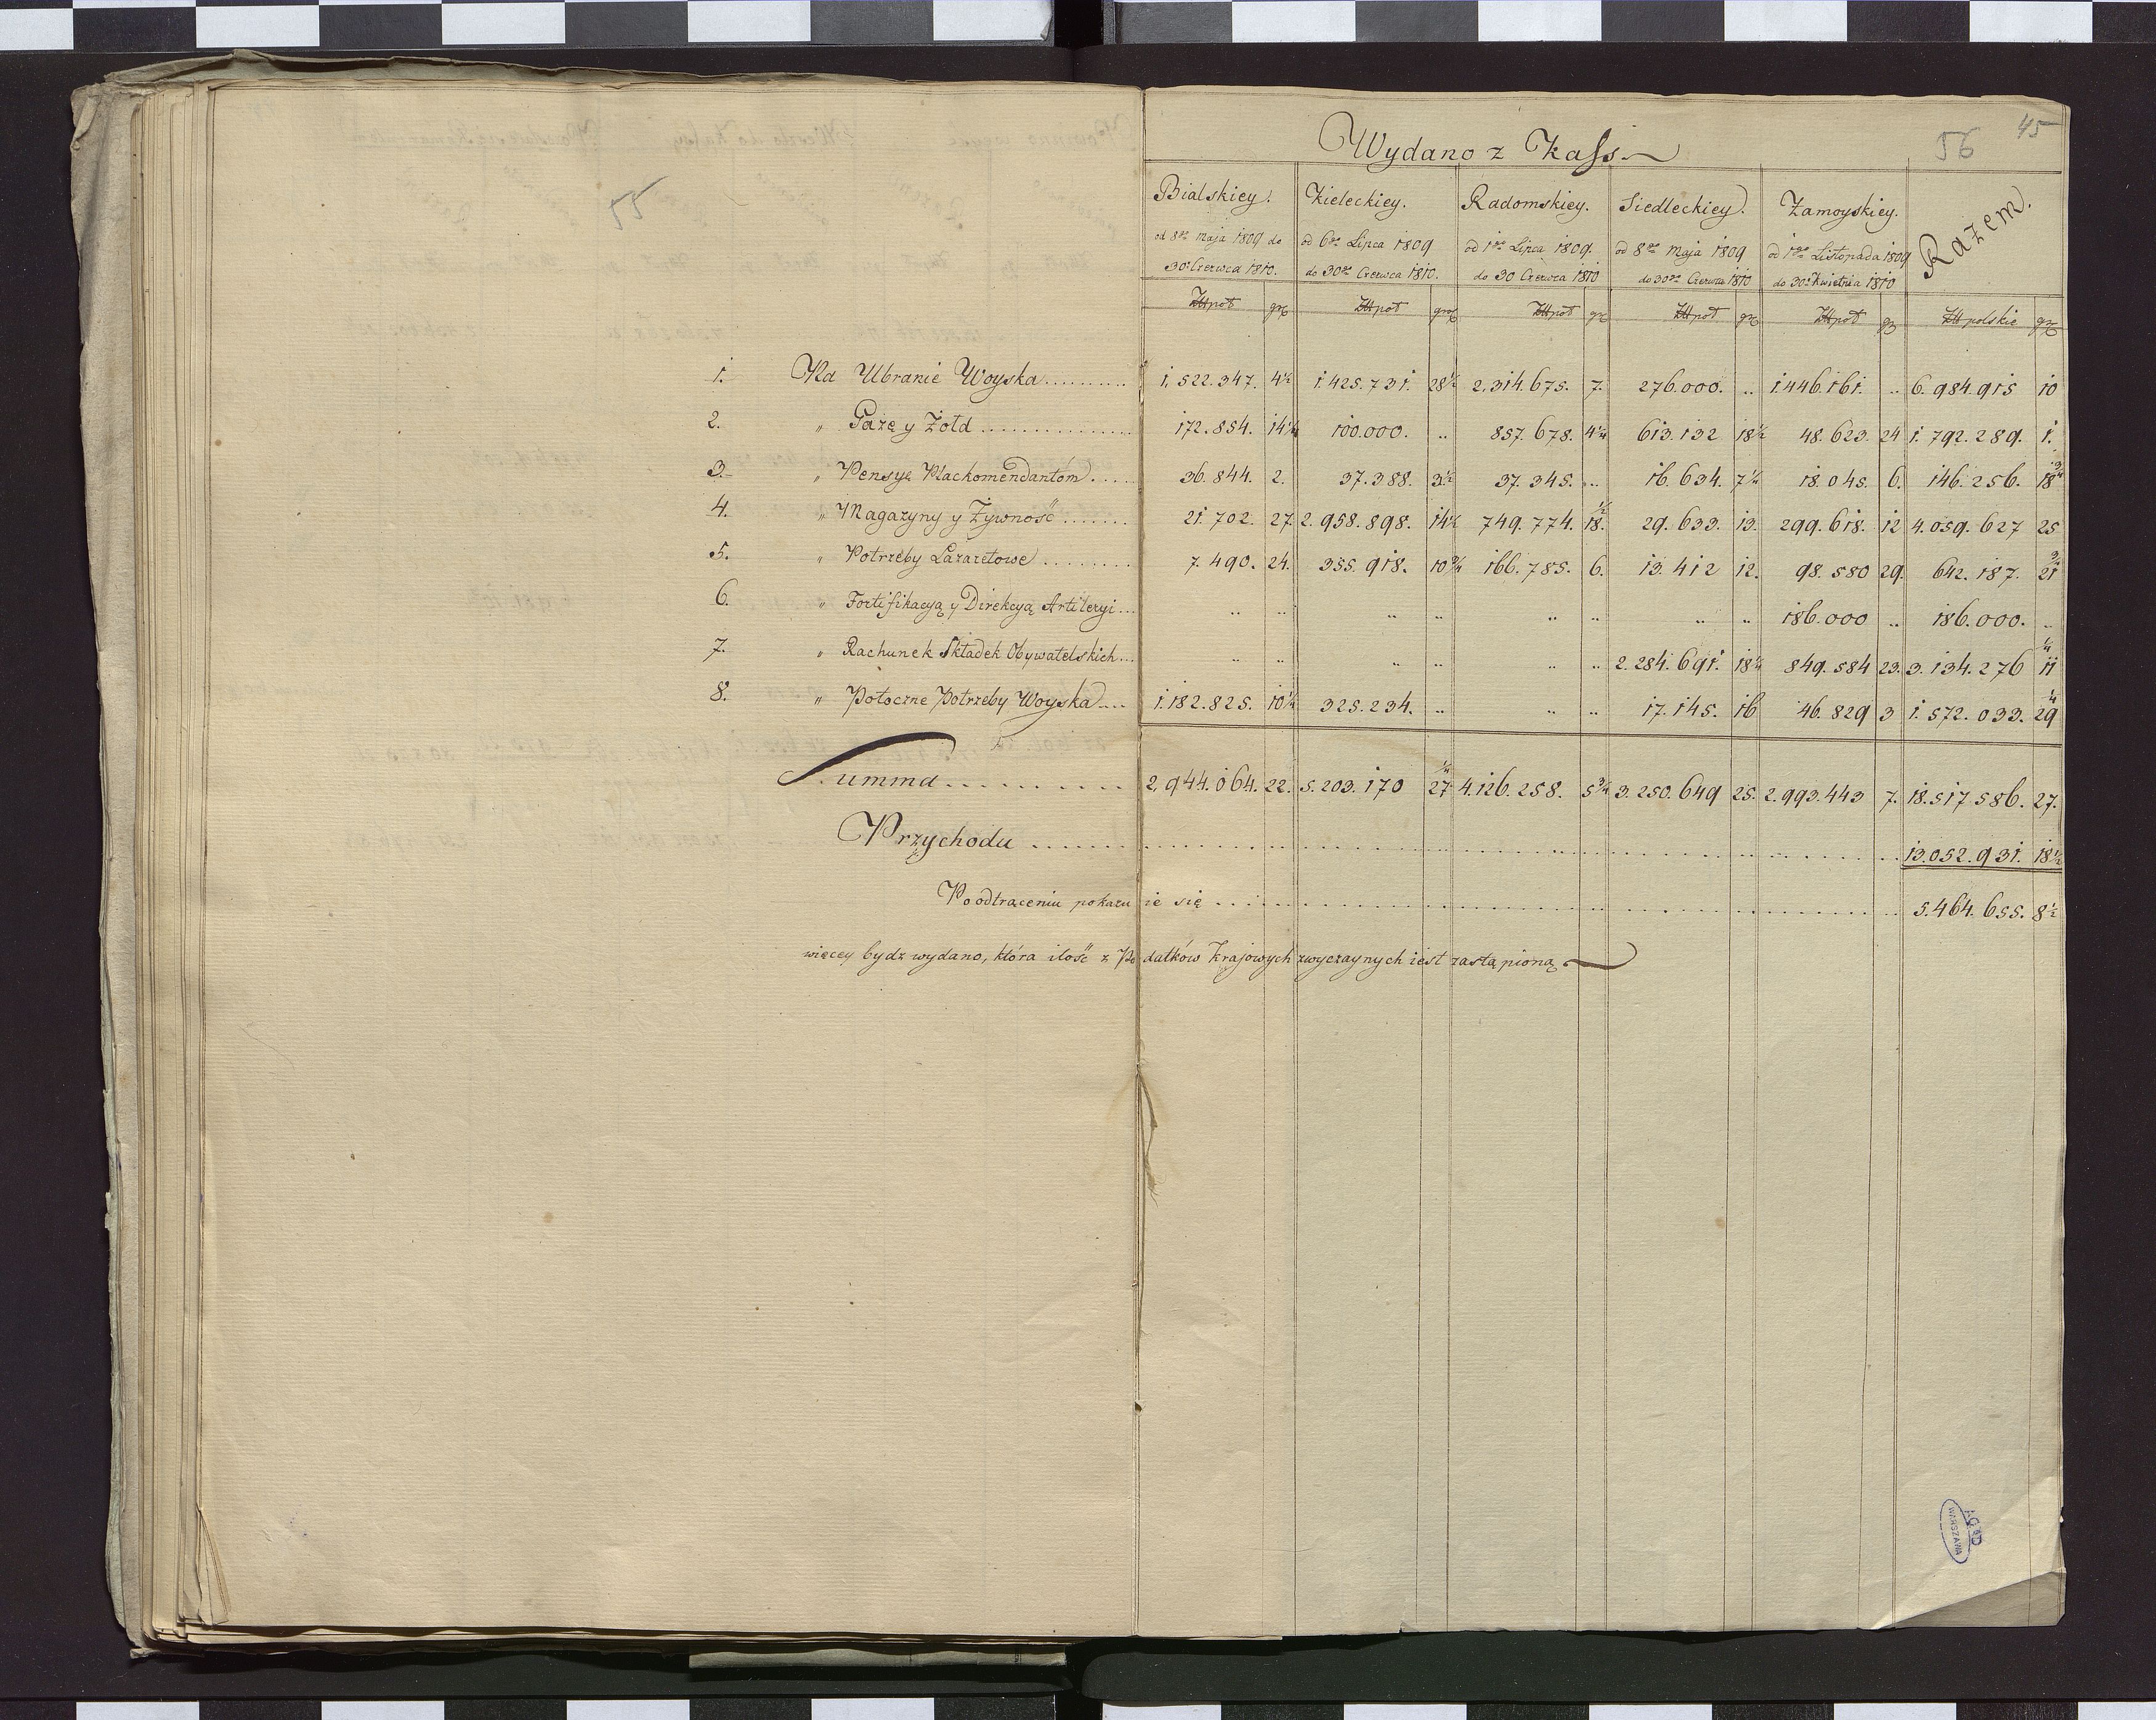 55
56 45
Wydano z Kass
Bialskiey. Kieleckiey. Radomskiey. Siedleckiey. Zamoyskiey. Razem.
od 8go Maja 1809 do od 6go Lipca 1809 od 1go Lipca 1809. od 8go Maja 1809 od 1go Listopada 1809
30 Czerwca 1810. do 30go Czerwca 1810. do 30 Czerwca 1810 do 30go Czerwca 1810 do 30 Kwietnia 1810
Złł pol grz Złł pol grz Złł pol gr Złł pol gr Złł pol gr Złł polskie grz
1. Na Ubranie Woyska........... 1.522.347. 4½ 1.425.731. 28½ 2.314.675. 7. 276.000. .. 1.446.161. .. 6.984.915 10
2. " Gażę y Żołd ............... 172.854. 14¼ 100.000. .. 857.678. 4¼ 613.132 18½ 48.623. 24 1.792.289. 1.
3. " Pensyę Plackomendantom..... 36.844. 2. 37.388. 3½ 37.345. .. 16.634. 7¼ 18.045. 6. 146.256. 18¾
4. " Magazyny y Żywność ....... 21.702. 27 2.958.898. 14½ 749.774. 18½. 29.633. 13. 299.618. 12 4.059.627 25
5. " Potrzeby Lazaretowe ........ 7.490. 24. 355.918. 10¾ 166.785. 6. 13.412 12. 98.580 29. 642.187. 21¾
6. " Fortifikacyą y Direkcyą Artileryi... .. .. .. .. .. .. .. .. 186.000 .. 186.000. ..
7. " Rachunek Składek Obywatelskich... .. .. .. .. .. .. 2.284.691. 18¼ 849.584 23. 3.134.276 11¼
8. " Potoczne Potrzeby Woyska.... 1.182.825. 10¼ 325.234. .. .. .. 17.145. 16 46.829 3 1.572.033. 29¼
Summa.......... 2.944.064. 22. 5.203.170 27¼ 4.126.258. 5¾ 3.250.649 25. 2.993.443 7. 18.517.586. 27.
Przychodu ........ 13.052.931. 18½
Po odtrąceniu pokazuie się ........ 5.464.655. 8½
więcey bydz wydano, która ilość z Podatków Krajowych zwyczaynych iest zastąpioną
AGAD
WARSZAWA